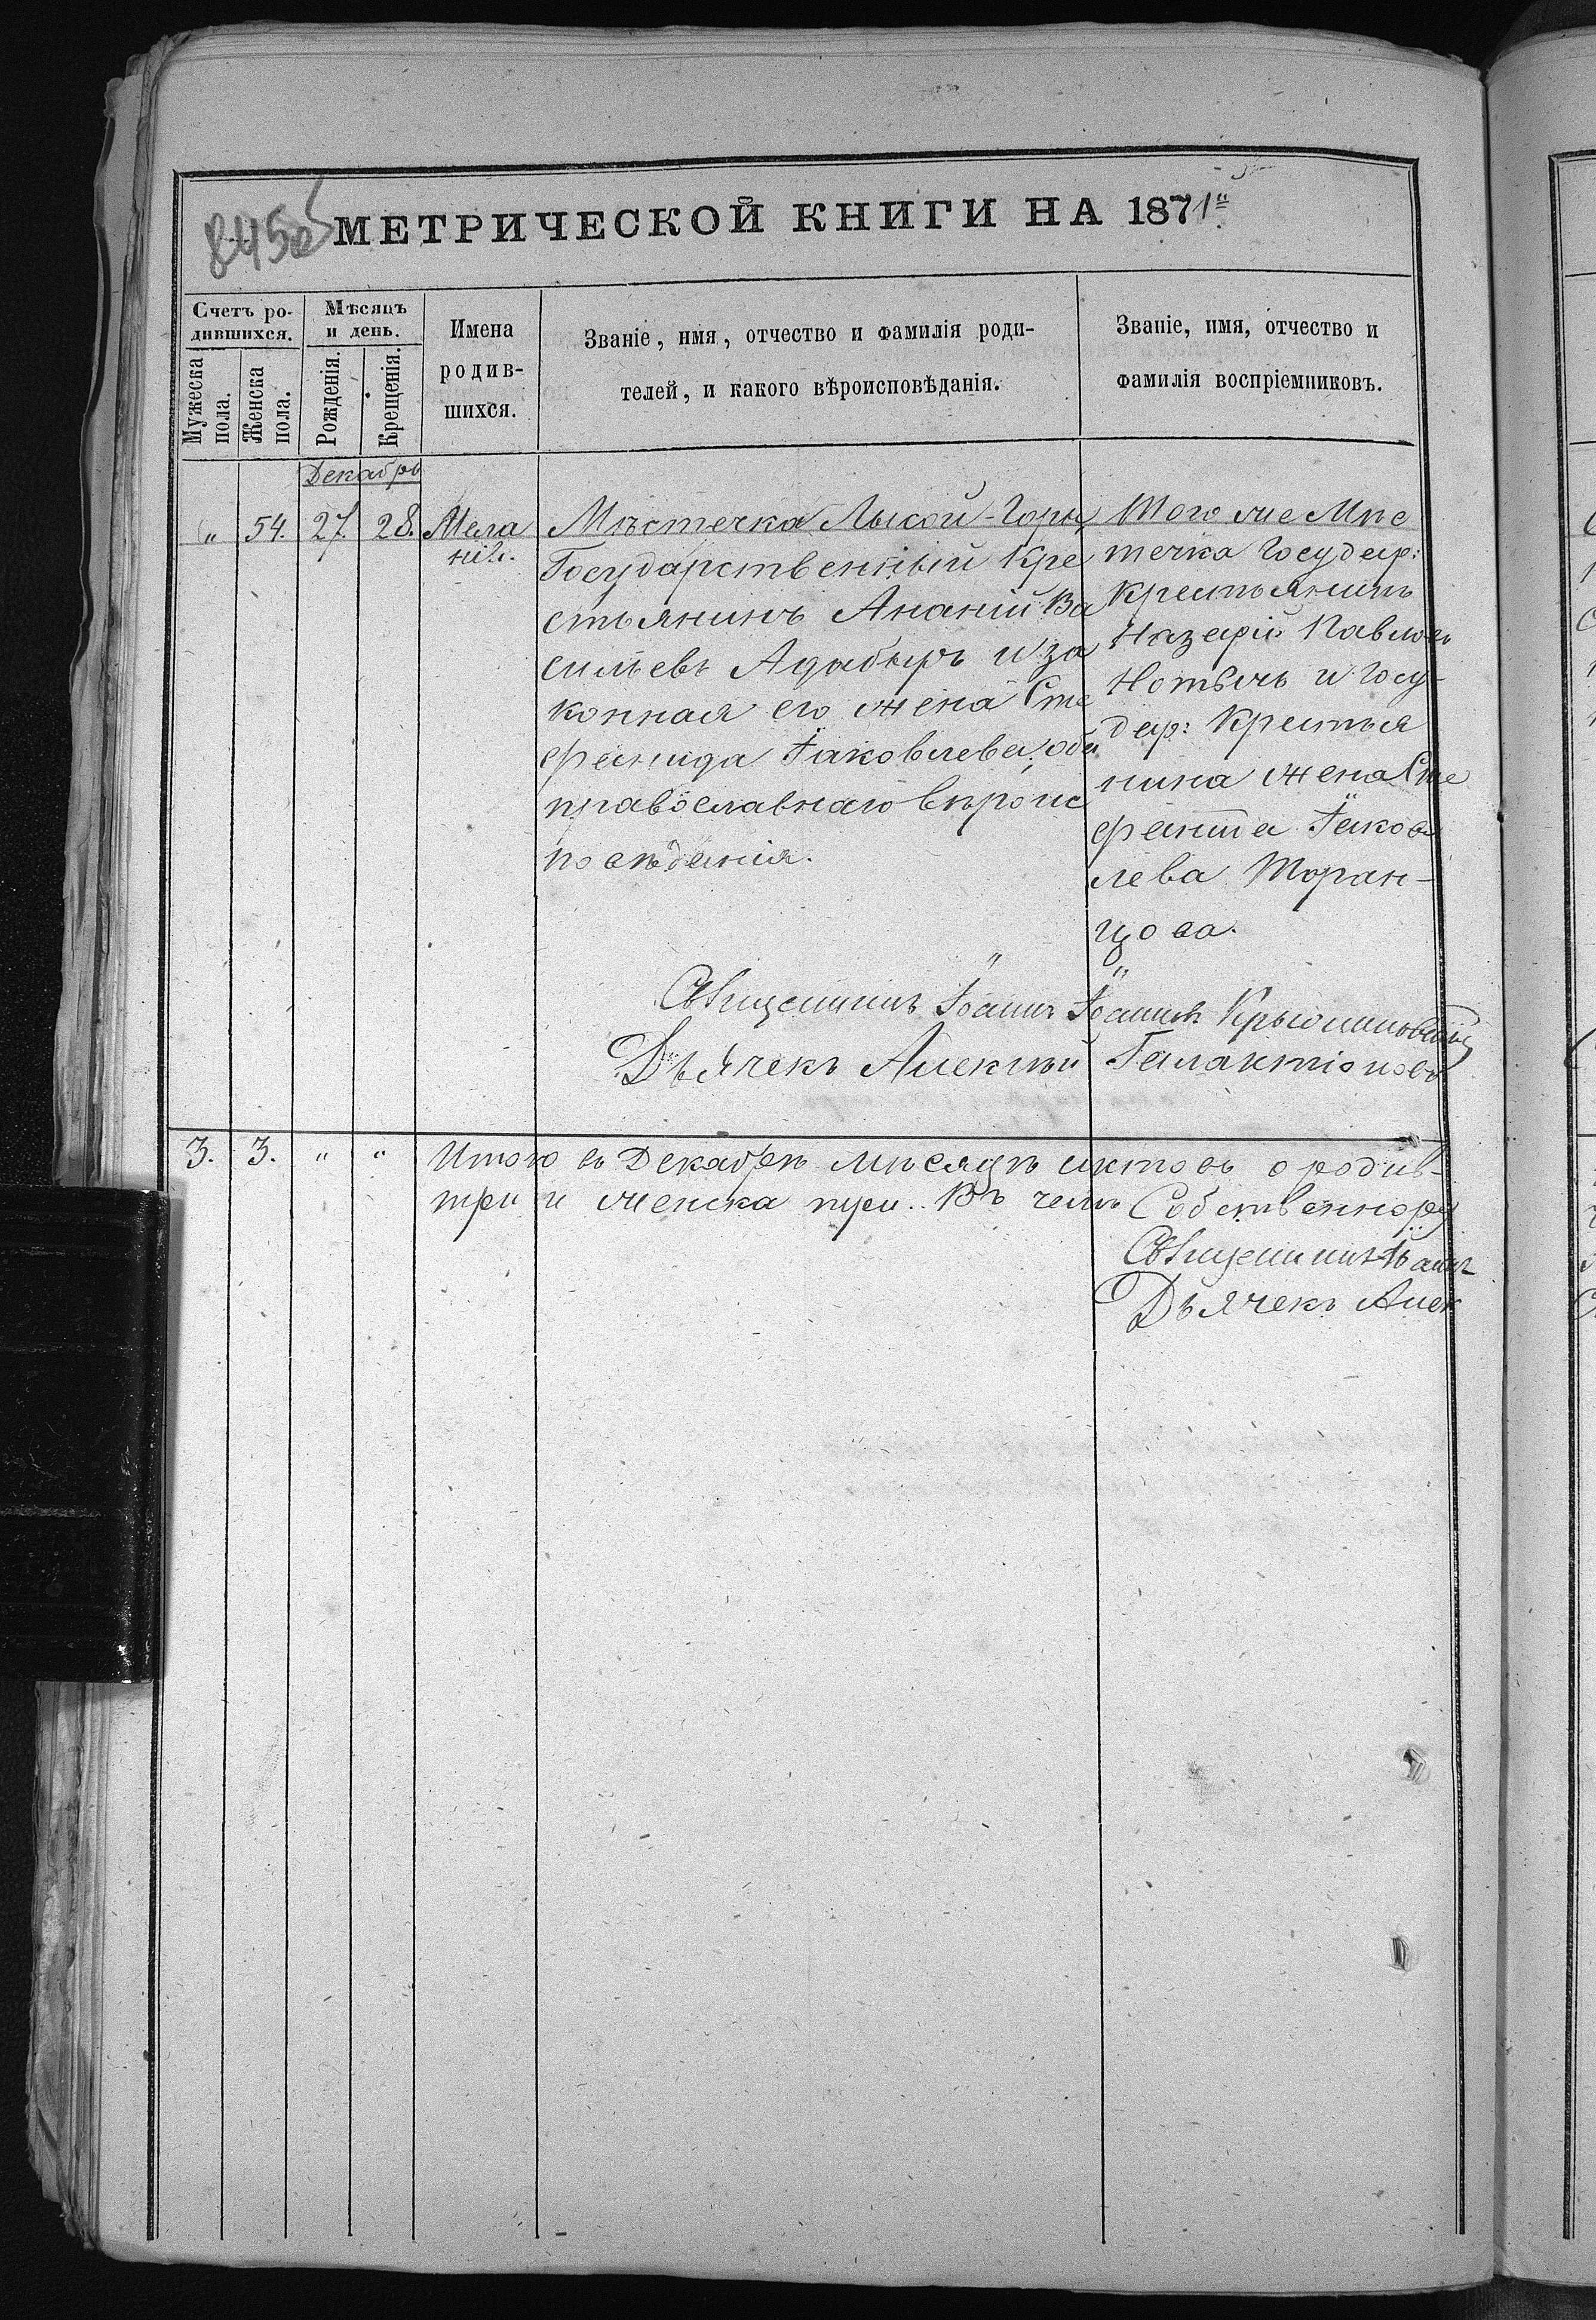 МЕТРИЧЕСКОЙ КНИГИ НА 1871
Счетъ ро-
дившихся.
Мужеска
пола.
Женска
пола.
Мѣсяцъ
и день.
Рожденія.
Крещенія.
Имена
родив-
шихся.
Званіе, имя, отчество и фамилія роди-
телей, и какого вѣроисповѣданія.
Званіе, имя, отчество и
фамилія воспріемниковъ.
Декабрь
" 54. 27. 28.
Мела
нія.
Мѣстечка Лысой-Горы,
Государственный Кре
стьянинъ Ананій Ва
сильевъ Адабыръ и за
конная его жена Сте
фанида Іаковлева, оба
православнаго вѣроис
повѣданія.
Того же Мѣс
течка Государ:
Крестьянинъ
Назарій Павловъ
и Госу-
дар: Крестья
нина жена Сте
Іаков
лева Торан-
цова.
Священникъ Іоаннъ Іоанновъ
Дьячекъ Алексѣй Галактіоновъ
3. 3. " " Итого въ Декабрѣ мѣсяцѣ актовъ о родив-
три и женска три. Въ чемъ Собственнору
Священникъ Іоаннъ
Дьячекъ Алек